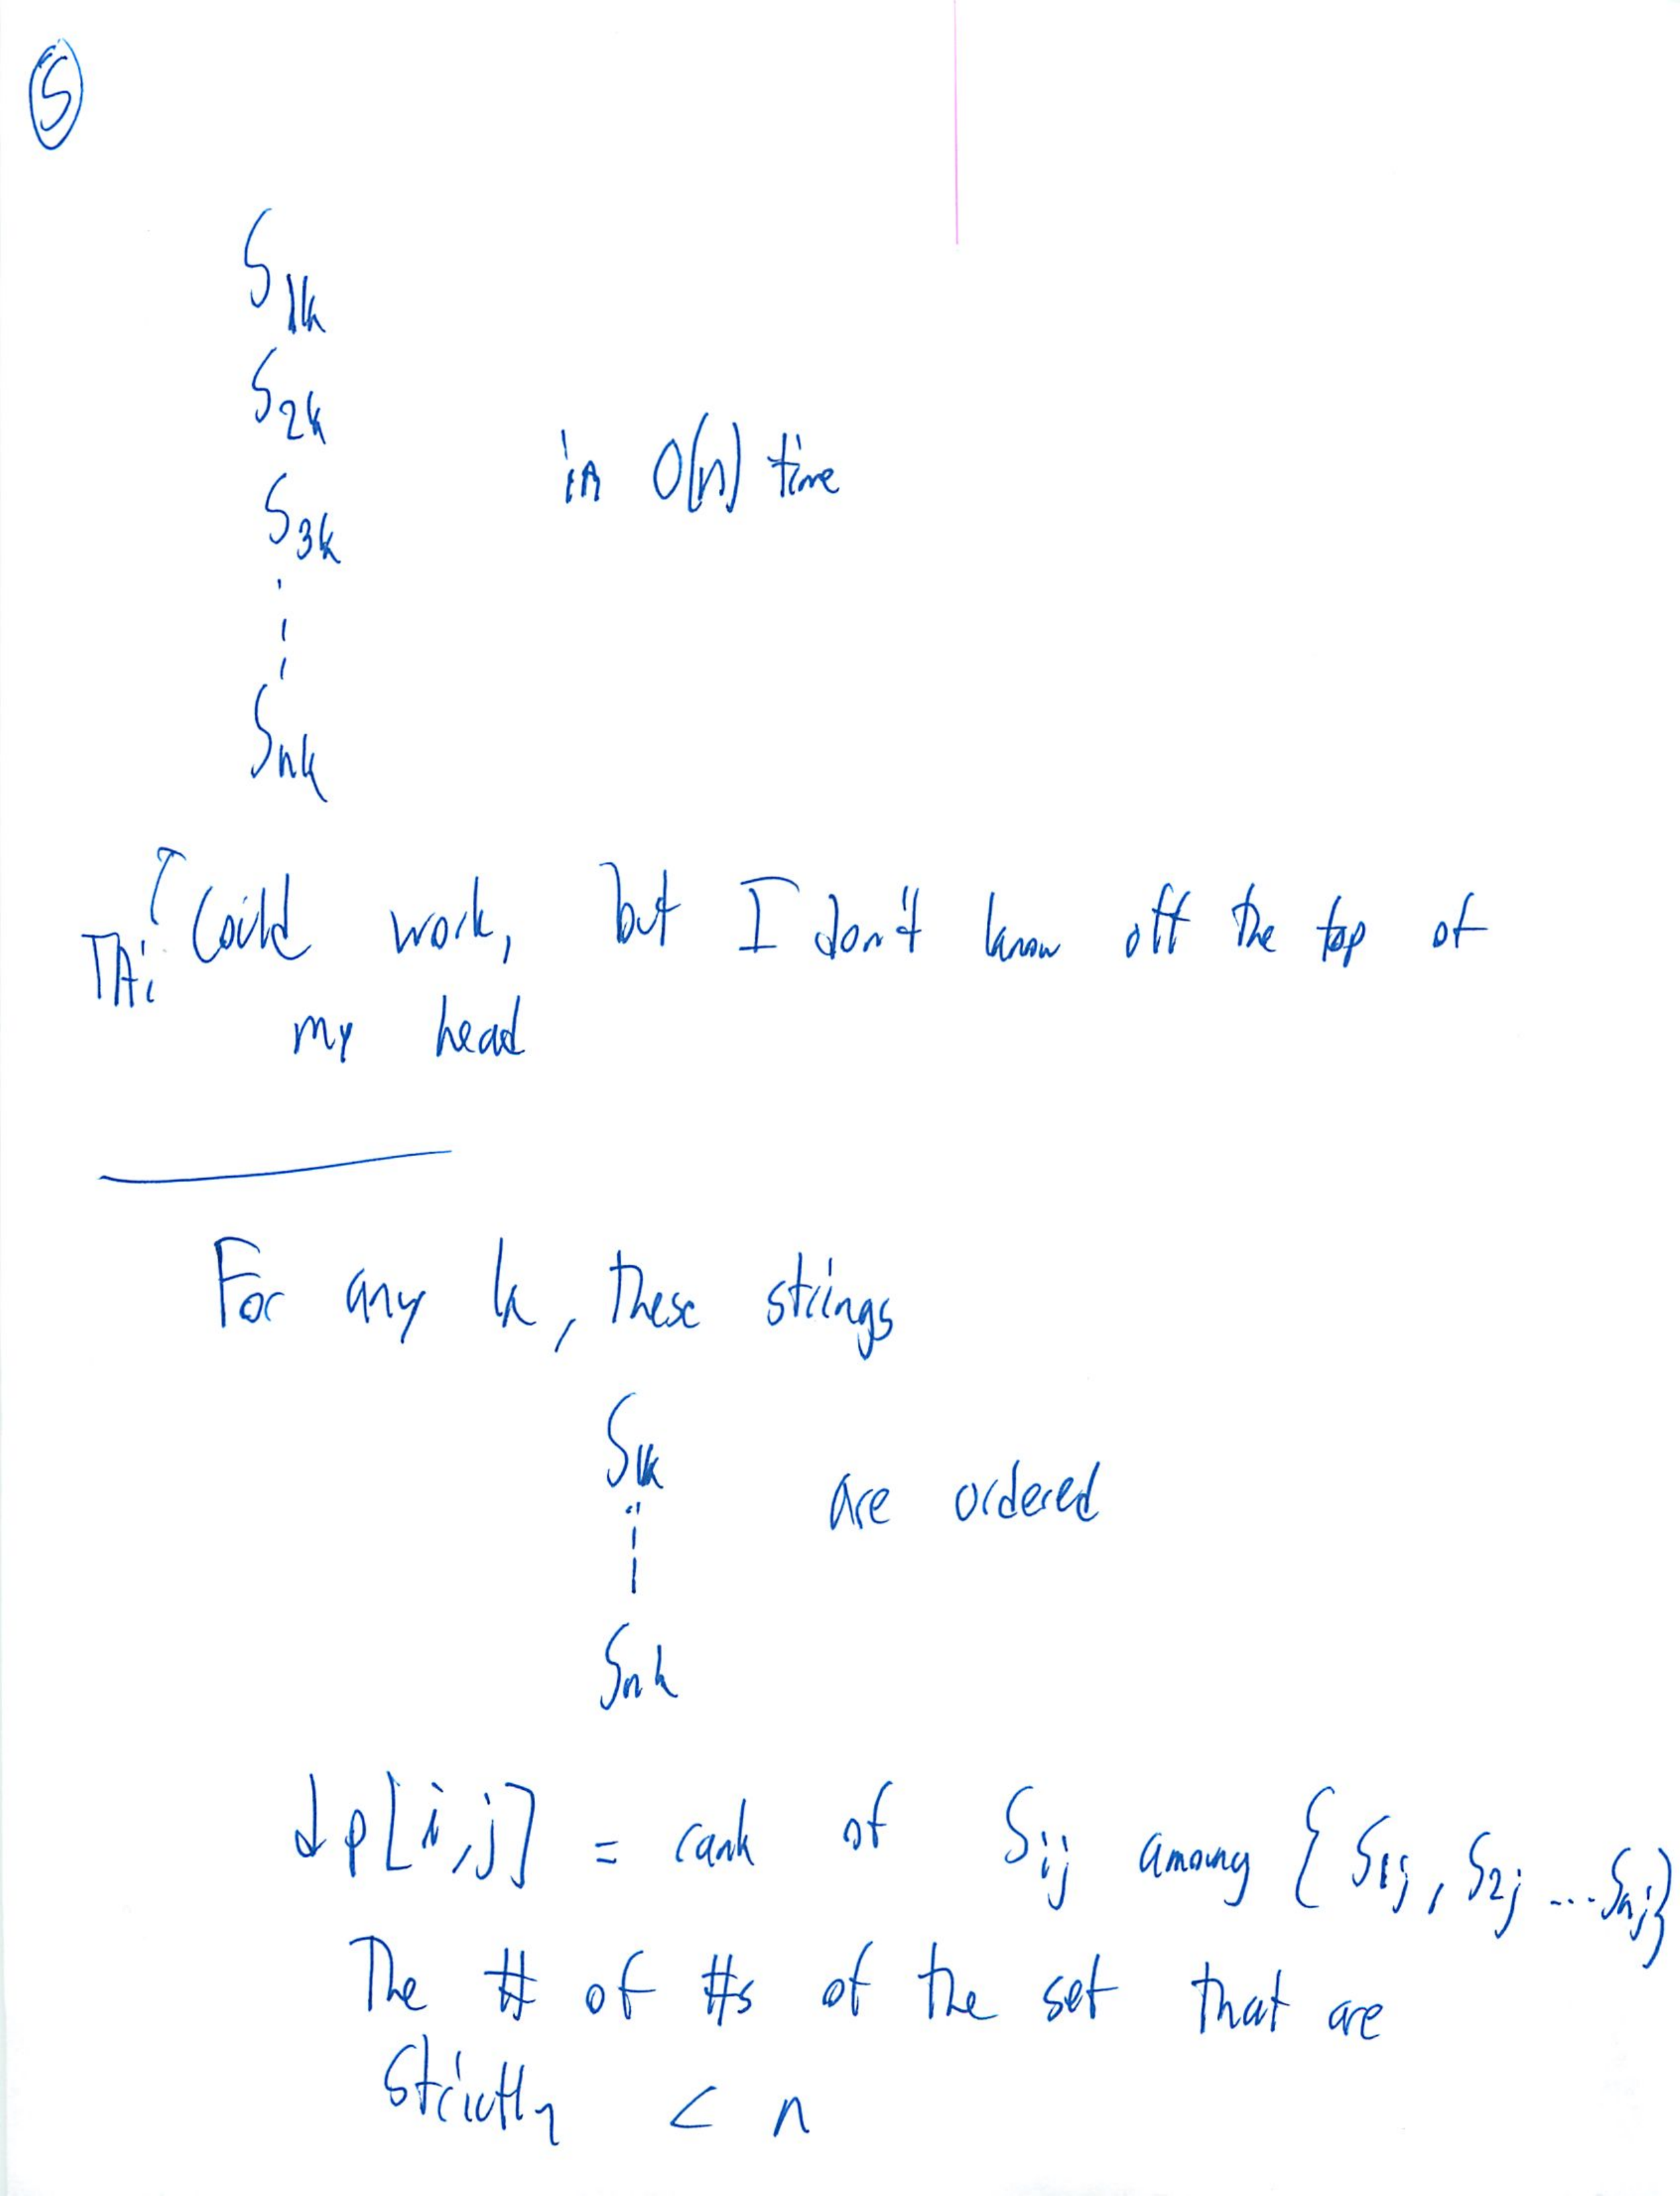 5
S1k
S2k
in O(n) time
S3k
Snk
This could work, but I don't know off the top of
my head
For any k, these strings
S1k
are ordered
Snk
dp[i,j] = rank of Sij among {S1j, S2j ... Snj}
The # of #s of the set that are
strictly < n